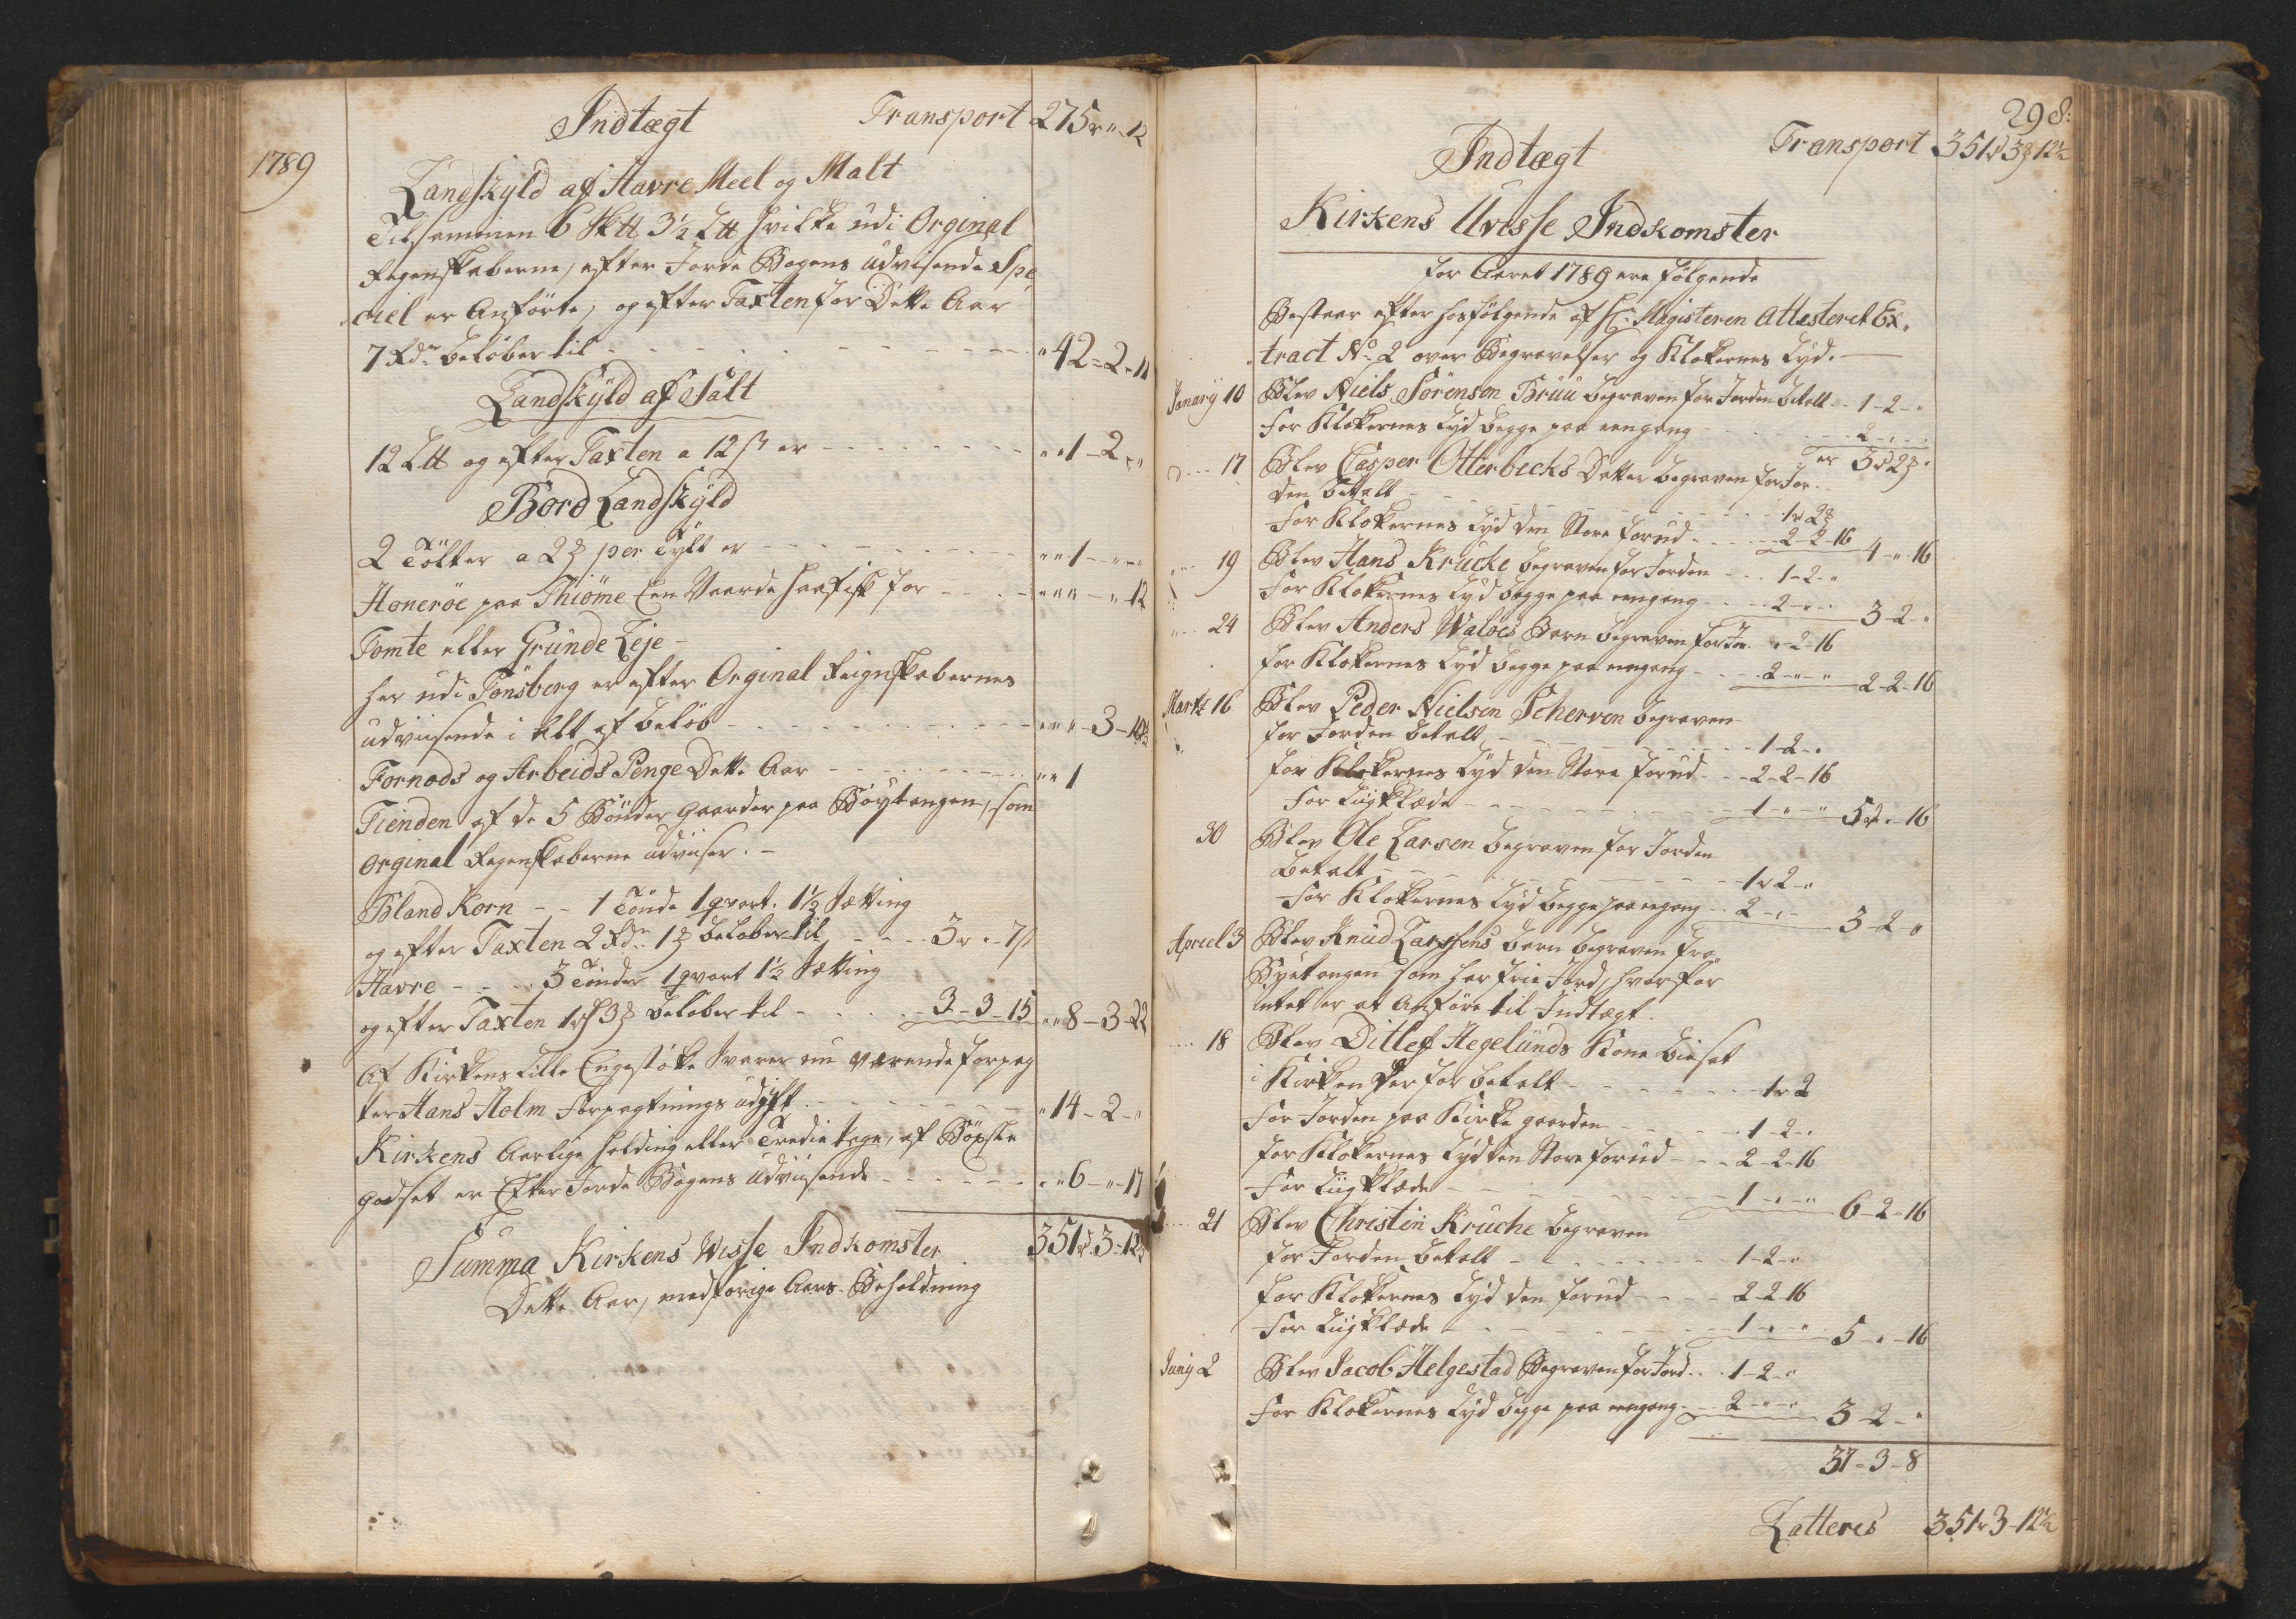 Indtægt Transport 275 r " 12
1789
Landskyld af Havre Meel og Malt
Tilsammen 6 Sktt 3½ Ltt hvilke udi Orginal
Regenskaberne, efter Jorde Bogens Udvisende Spe
ciel er Anførte, og efter Taxten for Dette Aar
7 Rdr beløber til " 42-2-11
Landskyld af Salt
12 Ltt og efter Taxten a 12 ß er " " 1-2 "
Bord Landskyld
2 Tölter a 2 per Tylt er " " 1 - " -
Honeröe paa Thiöme Een Vaarde Haafisk for " " " - " 12
Tomte eller Grunde Leje
her udi Tönsberg er efter Orginal Reignskabernes
udviisende i alt af beløb " " " - 3 -
Fornøds og Arbeids Penge Dette Aar " " 1
Tienden af de 5 Bönder gaarder paa Böytangen, som
Orginal Regenskaberne udviser. -
Bland Korn - - 1 Tönde 1 qvart. 1½ Sætting
og efter Taxten 2 Rdr 1 beløber til 3 r " 7 ß
Havre - - 3 Tönder 1 qvart 1½ Sætting
og efter Taxten 1 3 beløber til 3-3-15 " " 8-3-22
Af Kirkens Lille Engestökke svarer nu værende Forpag
ter Hans Holm Forpagtnings udgift " 14-2-"
Kirkens Aarlige holding eller Tredie tage, af
godset er Efter Jorde Bogens Udviisende " " 6 - " 17
Summa Kirkens Wisse Indkomster 351-3-12½
Dette Aar, med forige Aars Beholdning
298.
Indtægt Transport 351 3 12½
Kirkens Uvisse Indkomster
for Aaret 1789 ere følgende
Bestaar efter hosfølgende af Hr. Magisteren Attesteret Ex,
tract No 2 over Begravelser og Klokernes Lyd. -
Janarÿ 10 Blev Niels Sörensen Brüü begraven for Jorden betalt 1-2-"
For Klokernes Lyd begge paa eengang 2 - " -
er 3 2 "
17 Blev Casper Otterbechs Datter begraven for Jor-
den betalt 1 2
For Klokernes Lyd den Store forud 2-2-16 4-"-16
19 Blev Hans Krücke begraven for Jorden 1-2-"
For Klokernes Lyd begge paa eengang 2-"-" 3-2-"
24 Blev Anders Waløes Barn begraven for Jor. "-2-16
for Klokernes Lyd begge paa eengang 2-"-" 2-2-16
Marti 16 Blev Peder Nielsen Scherven begraven
for Jorden betalt 1-2-"
for Klokernes Lyd den Store forud 2-2-16
For Liigklæde 1-"-" 5-"-16
30 Blev Ole Larsen begraven for Jorden
betalt 1 2-"
For Klokernes Lyd begge paa engang 2-"- 3-2-"
Apriel 3 Blev Knüd Larsens barn begraven fra
Byetangen som har frie Jord, hvorfor
intet er at Anføre til Indtægt.
18 Blev Ditlef Hegelunds Kone biesat
i Kirken Derfor betalt 1 2
For Jorden paa Kirke gaarden 1-2-"
for Klokernes Lyd den Store forud 2-2-16
For Liigklæde 1-"-" 6-2-16
21 Blev Christin Krüche begraven
for Jorden betalt 1-2-"
for Klokernes Lyd den forud 2-2-16
For Liigklæde 1-"-" 5-"-16
Junij 2 Blev Jacob Helgestad Begraven for Jord 1-2-"
For Klokernes Lyd begge paa eengang 2-"-" 3-2-"
37-3-8
Latteres 351 r 3-12½